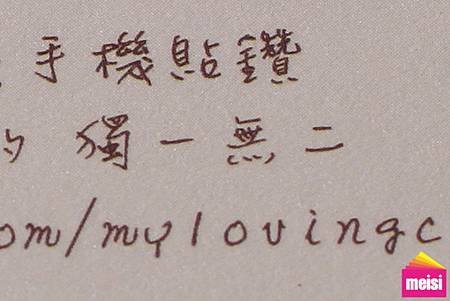 手機貼鑽
的 獨一無二
om/mylovingc
meisi